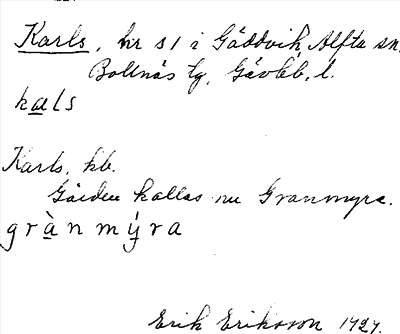 Karls, hr s1 i Gäddvik, Alfta sn,
Bollnäs tg, Gävlb. l.
kals
Karls, kb.
Gården kallas nu Granmyra.
grànmýra
Erik Eriksson 1927.